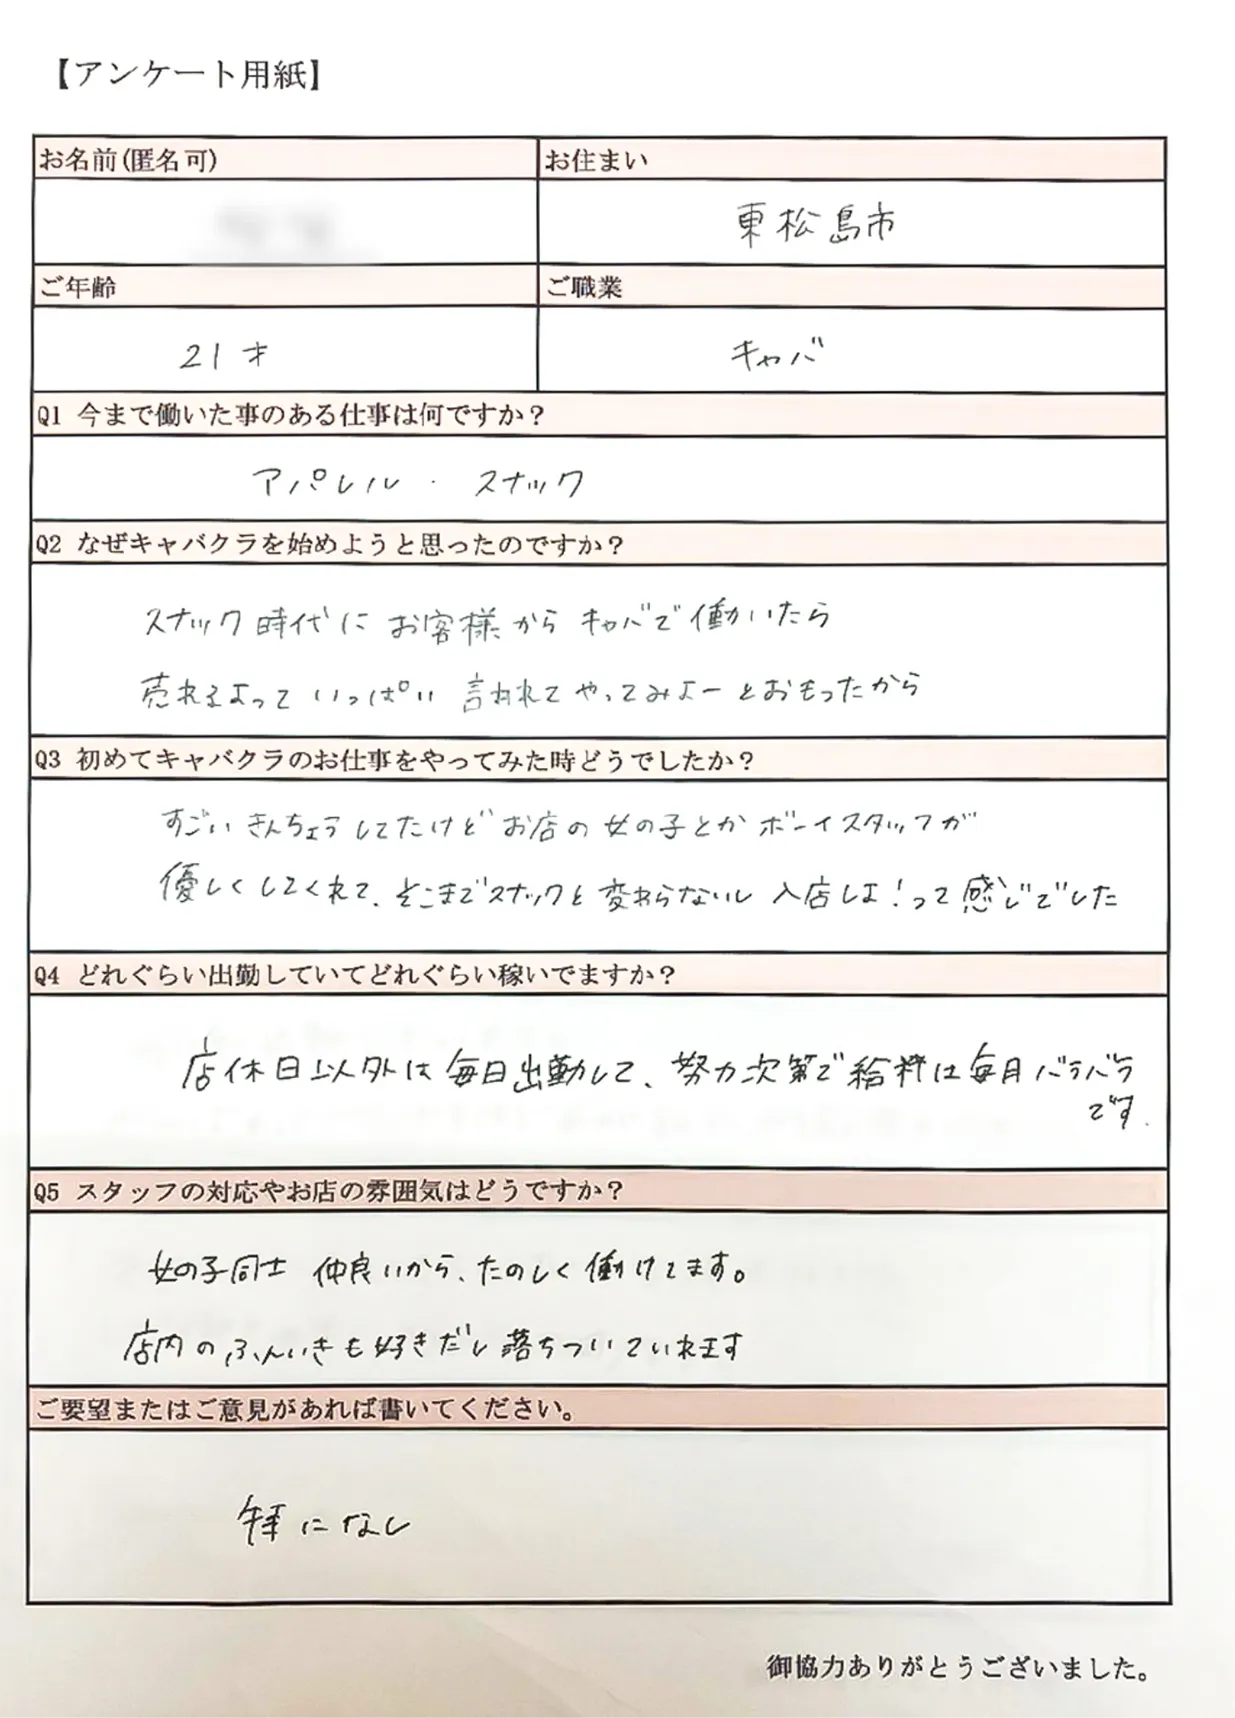 【アンケート用紙】
お名前(匿名可)
お住まい
東松島市
ご年齢
ご職業
21才
キャバ
Q1 今まで働いた事のある仕事は何ですか？
アパレル・スナック
Q2 なぜキャバクラを始めようと思ったのですか？
スナック時代にお客様からキャバで働いたら
売れるよっていっぱい言われてやってみよーとおもったから
Q3 初めてキャバクラのお仕事をやってみた時どうでしたか？
すごいきんちょうしてたけどお店の女の子とかボーイスタッフが
優しくしてくれて、そこまでスナックと変わらないし入店しよ！って感じでした
Q4 どれぐらい出勤していてどれぐらい稼いでますか？
店休日以外は毎日出勤して、努力次第で給料は毎月バラバラ
です.
Q5 スタッフの対応やお店の雰囲気はどうですか？
女の子同士仲良いから、たのしく働けてます。
店内のふんいきも好きだし落ちついていれます
ご要望またはご意見があれば書いてください。
特になし
御協力ありがとうございました。